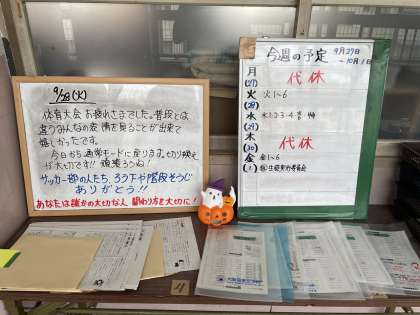 9/28(火)
体育大会お疲れさまでした。普段とは
違うみんなの表情を見ることが出来て
嬉しかったです。
今日から通常モードに戻ります。切り換え
が大切です!! 頑張ろうね!
サッカー部の人たち、ろう下や階段そうじ
ありがとう!!
あなたは誰かの大切な人 関わり方を大切に!
今週の予定 9月27日
~10月1日
月 代休
(27)
火 火1~6
(28)
水 水1・2・3・4
(29)
木 代休
(30)
金 金1~6
(1)
4